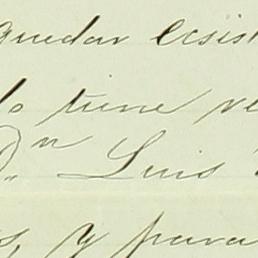 quedar ecsis
lo tiene ve
Dn Luis
y para